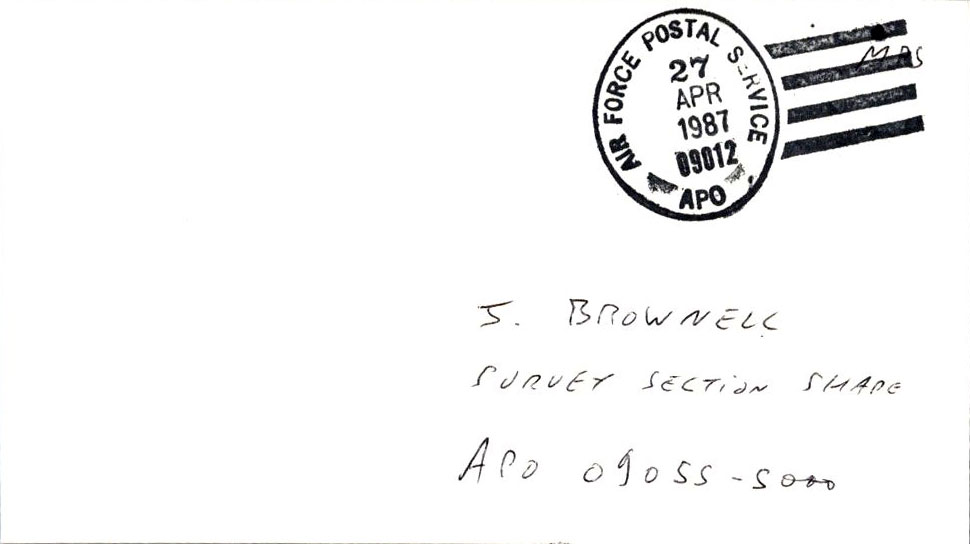 AIR FORCE POSTAL SERVICE
27
APR
1987
09012
APO
MPS
J. BROWNELL
SURVEY SECTION SHAPE
APO 09055-5000